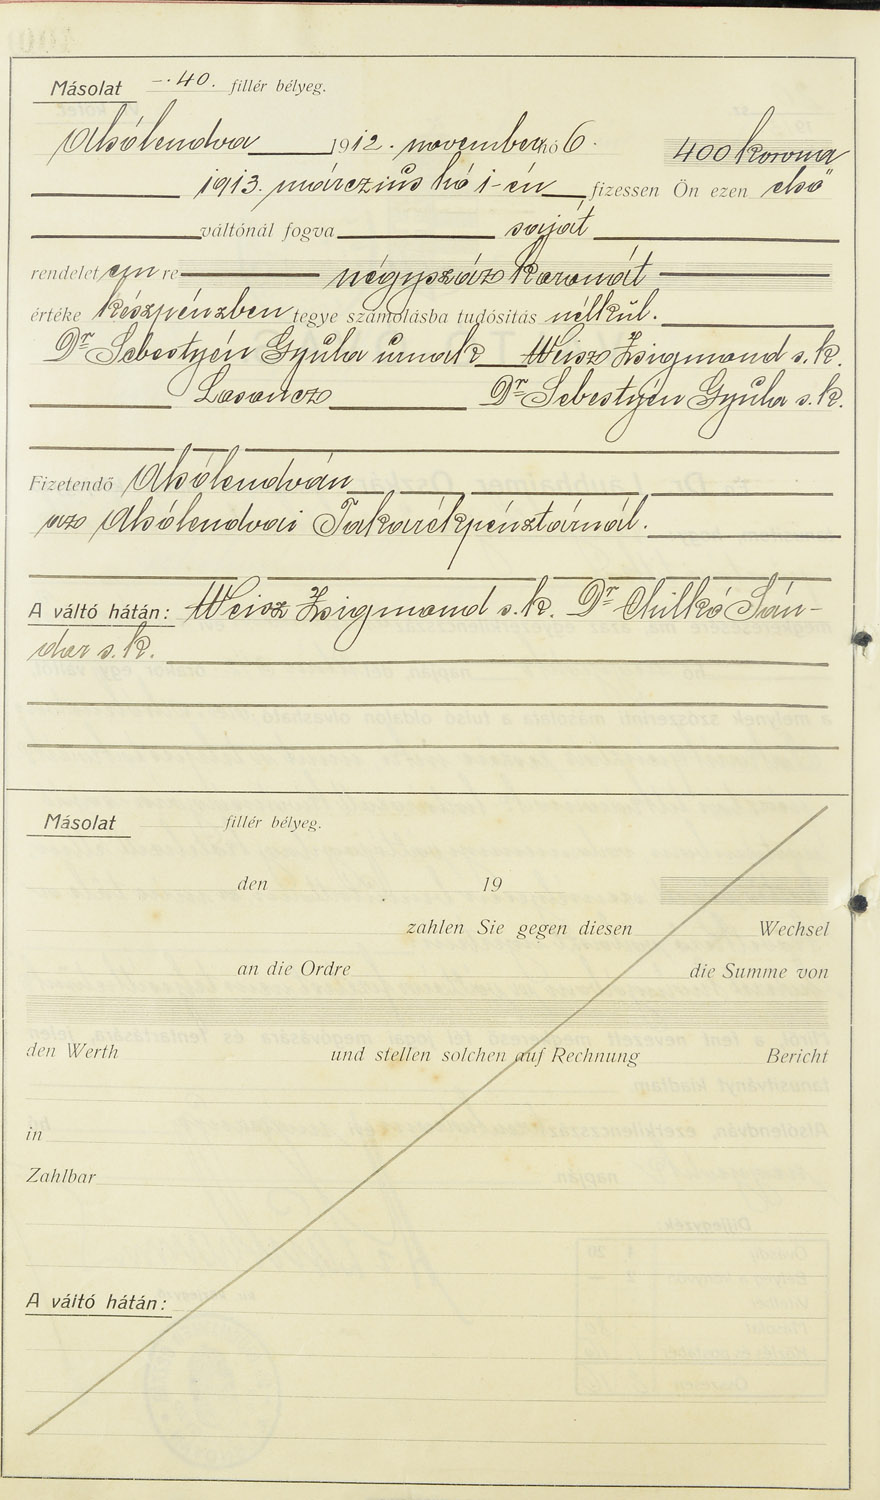 Másolat —.40. fillér bélyeg.
Alsólendva 1912. november hó 6. 400 korona
1913. márczius hó 1-én fizessen Ön ezen első
váltónál fogva saját
rendeletem re négyszáz koronát
értéke készpénzben tegye számolásba tudósítás nélkül.
Dr Sebestyén Gyula úrnak Weisz Zsigmond s. k.
Losoncz Dr Sebestyén Gyula s. k.
Fizetendő Alsólendván
az Alsólendvai Takarékpénztárnál.
A váltó hátán: Weisz Zsigmond s. k. Dr Chilkó Sán-
dor s. k.
Másolat fillér bélyeg.
den 19
zahlen Sie gegen diesen Wechsel
an die Ordre die Summe von
den Werth und stellen solchen auf Rechnung Bericht
in
Zahlbar
A váltó hátán: